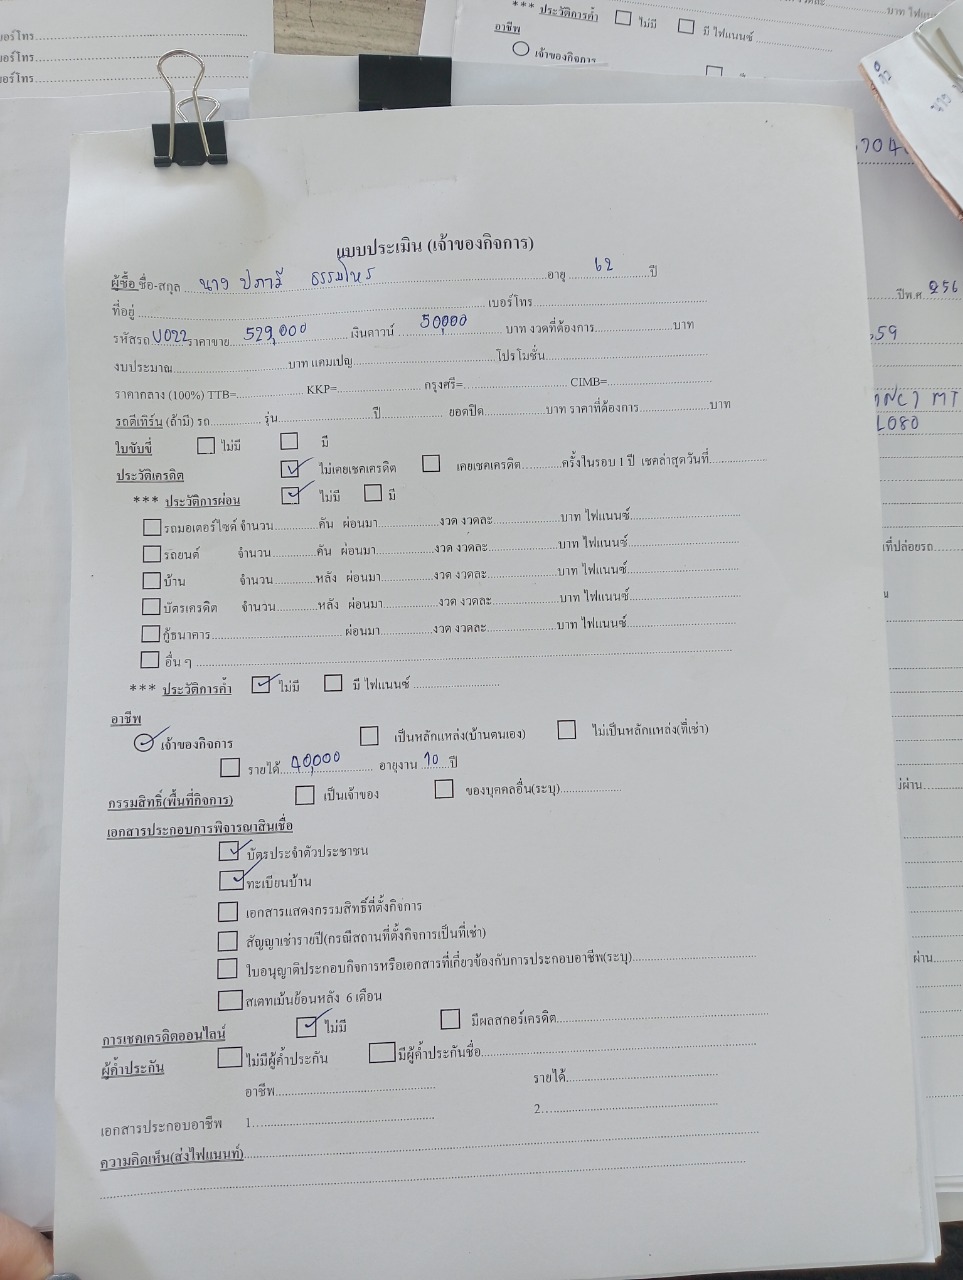 *** ประวัติการค้ำ ไม่มี มี ไฟแนนซ์
อาชีพ
เจ้าของกิจการ
บาท ไฟแนน
เบอร์โทร
เบอร์โทร
เบอร์โทร
แบบประเมิน (เจ้าของกิจการ)
ผู้ซื้อ ชื่อ-สกุล นาง อายุ 62 ปี
ที่อยู่ เบอร์โทร
รหัสรถ U022 ราคาขาย 529,000 เงินดาวน์ 50,000 บาท งวดที่ต้องการ บาท
งบประมาณ บาท แคมเปญ โปรโมชั่น
ราคากลาง (100%) TTB= KKP= กรุงศรี= CIMB=
รถตีเทิร์น (ถ้ามี) รถ รุ่น ปี ยอดปิด บาท ราคาที่ต้องการ บาท
ใบขับขี่ ไม่มี มี
ประวัติเครดิต ไม่เคยเชคเครดิต เคยเชคเครดิต ครั้งในรอบ 1 ปี เชคล่าสุดวันที่
*** ประวัติการผ่อน ไม่มี มี
รถมอเตอร์ไซค์ จำนวน คัน ผ่อนมา งวด งวดละ บาท ไฟแนนซ์
รถยนต์ จำนวน คัน ผ่อนมา งวด งวดละ บาท ไฟแนนซ์
บ้าน จำนวน หลัง ผ่อนมา งวด งวดละ บาท ไฟแนนซ์
บัตรเครดิต จำนวน หลัง ผ่อนมา งวด งวดละ บาท ไฟแนนซ์
กู้ธนาคาร ผ่อนมา งวด งวดละ บาท ไฟแนนซ์
อื่น ๆ
*** ประวัติการค้ำ ไม่มี มี ไฟแนนซ์
อาชีพ
เจ้าของกิจการ เป็นหลักแหล่ง(บ้านตนเอง) ไม่เป็นหลักแหล่ง(ที่เช่า)
รายได้ 40,000 อายุงาน 10 ปี
กรรมสิทธิ์(พื้นที่กิจการ) เป็นเจ้าของ ของบุคคลอื่น(ระบุ)
เอกสารประกอบการพิจารณาสินเชื่อ
บัตรประจำตัวประชาชน
ทะเบียนบ้าน
เอกสารแสดงกรรมสิทธิ์ที่ตั้งกิจการ
สัญญาเช่ารายปี(กรณีสถานที่ตั้งกิจการเป็นที่เช่า)
ใบอนุญาติประกอบกิจการหรือเอกสารที่เกี่ยวข้องกับการประกอบอาชีพ(ระบุ)
สเตทเม้นย้อนหลัง 6 เดือน
การเชคเครดิตออนไลน์ ไม่มี มีผลสกอร์เครดิต
ผู้ค้ำประกัน ไม่มีผู้ค้ำประกัน มีผู้ค้ำประกันชื่อ
อาชีพ รายได้
เอกสารประกอบอาชีพ 1 2
ความคิดเห็น(ส่งไฟแนนท์)
ปีพ.ศ. 256
659
MT
ที่ปล่อยรถ
ไม่ผ่าน
ผ่าน